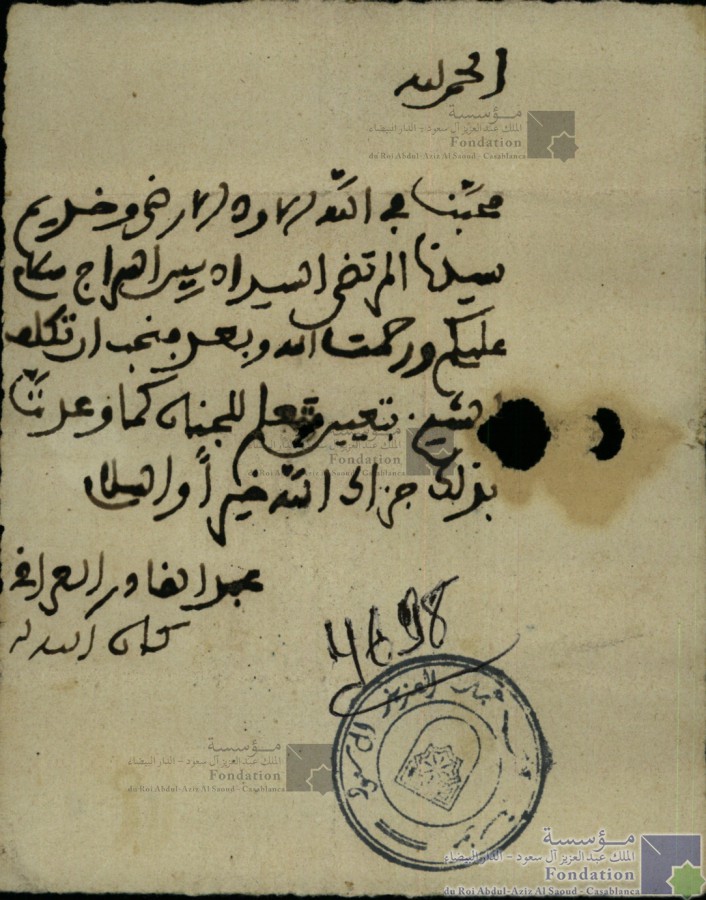 الحمد لله
مؤسسة
الملك عبد العزيز آل سعود - الدار البيضاء
Fondation
du Roi Abdul-Aziz Al Saoud - Casablanca
محبنا في الله الارضى وخديم
سيدنا المرتضى السيد سلام
عليكم ورحمت الله وبعد فنحب ان تكلف
بتعيين متعلم للجنان كما وعدتنا
بذلك جزاك الله خيراً والسلام
عبد القادر العراقي
كان الله له
مؤسسة
الملك عبد العزيز آل سعود - الدار البيضاء
Fondation
du Roi Abdul-Aziz Al Saoud - Casablanca
عبد العزيز آل سعود
مؤسسة
الملك عبد العزيز آل سعود - الدار البيضاء
Fondation
du Roi Abdul-Aziz Al Saoud - Casablanca
مؤسسة
الملك عبد العزيز آل سعود - الدار البيضاء
Fondation
du Roi Abdul-Aziz Al Saoud - Casablanca